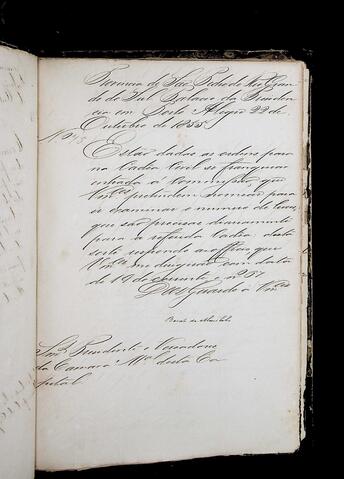 Provincia de São Pedro do Rio Gran
de do Sul Palacio da Presiden
cia em Porto Alegre 22 de
Outubro de 1855
Estão dadas as ordens para
na Cadea Civil se franquear
entrada á Commissão, que
Vm.ces pretendem nomear para
ir examinar o numero de luzes,
que são precisas diariamente
para a referida Cadea: desta
sorte respondo ao officio que
Vm.ces me dirigirão com data
de 19 do corrente, n. 257
Deos Guarde a Vm.ces
Barão de Muritiba
Snr.es Presidente e Vereadores
da Camara M.al desta Ca
pital